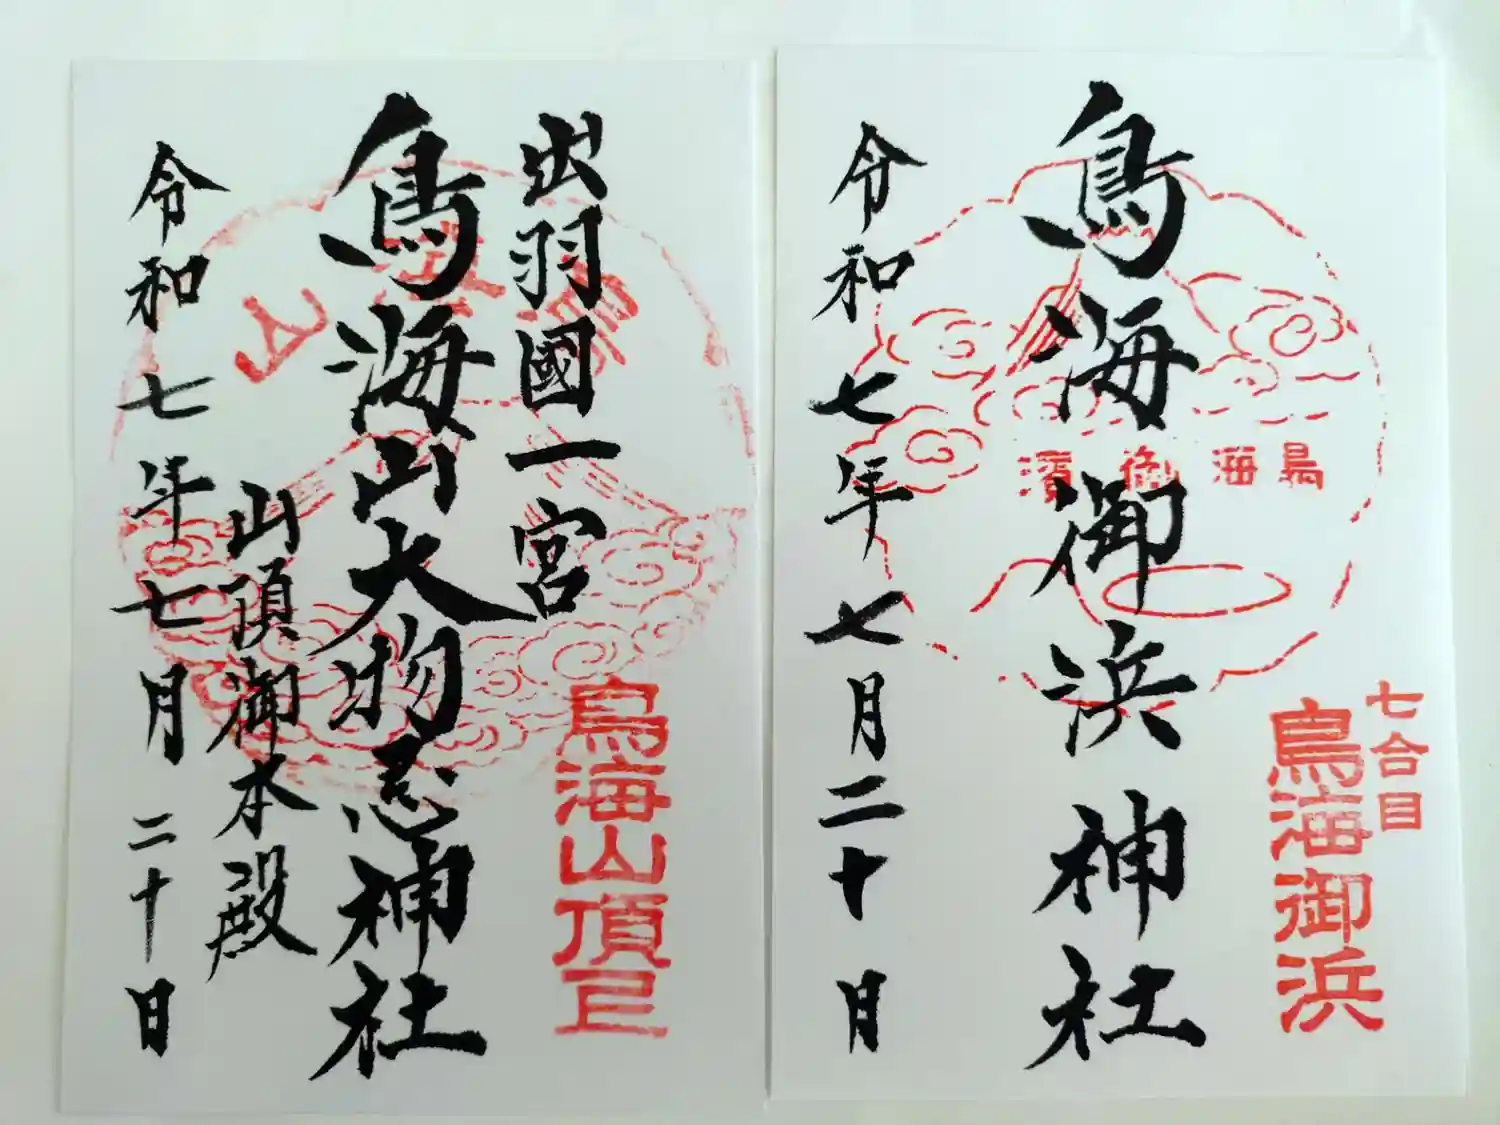 七合目
鳥海御浜
鳥海御濱
鳥海御浜神社
令和七年七月二十月
出羽國一宮
鳥海山
鳥海山頂
鳥海山大物忌神社
山頂御本殿
令和七年七月二十日